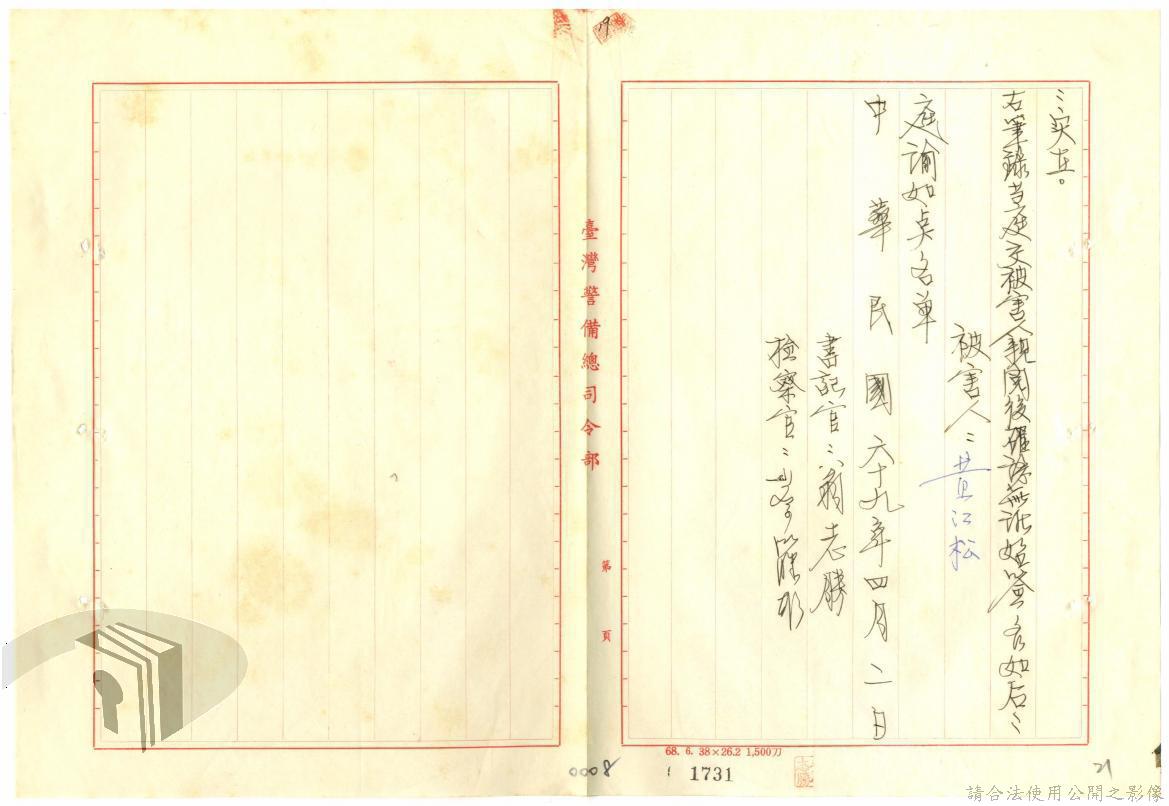 19
：实在。
右筆錄当庭交被害人親閱後確認無訛始簽名如后：
被害人：黃江松
庭諭如点名单
中華民國六十九年四月二日
書記官：翁志勝
檢察官：
臺灣警備總司令部
第 頁
68. 6. 38×26.2 1,500刀
1731
0008
21
請合法使用公開之影像